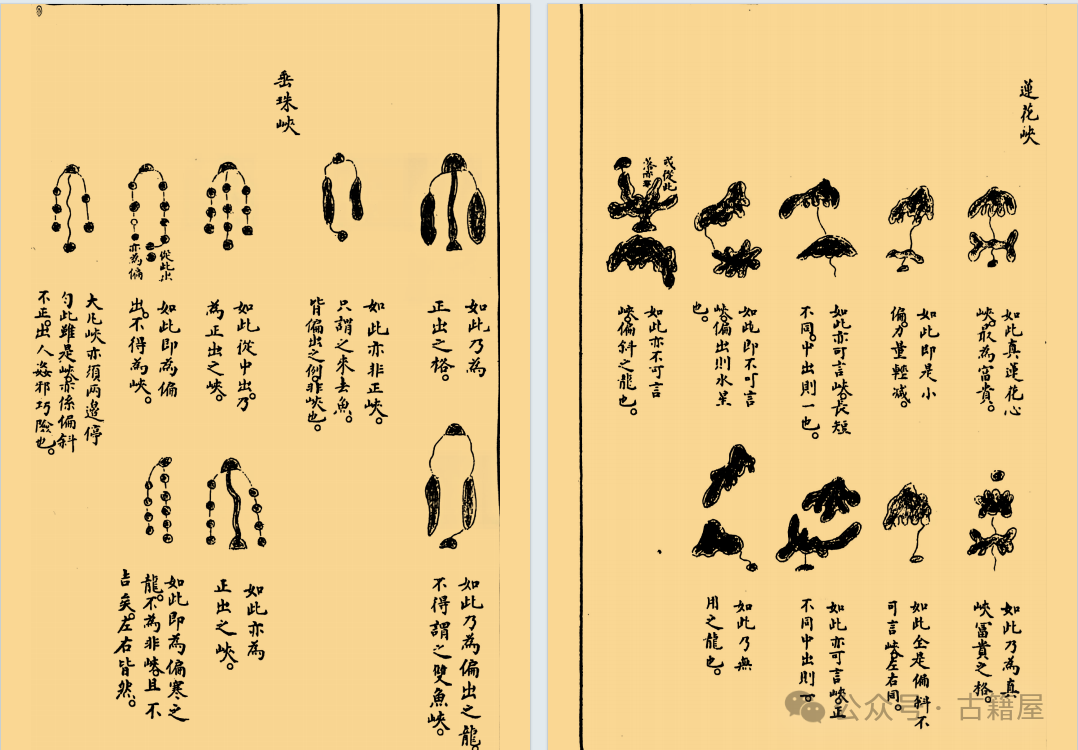 蓮花峽
如此真蓮花心
峽。㝡為富貴。
如此即是小
偏。力量輕減。
如此亦可言峽。長短
不同。中出則一也。
如此即不可言
峽。偏出則水星
也。
或從此
落亦
如此亦不可言
峽。偏斜之龍也。
如此乃為真
峽。富貴之格。
如此全是偏斜不
可言峽。左右同。
如此亦可言峽。正
不同中出則一。
如此乃無
用之龍也。
垂珠峽
如此乃為
正出之格。
如此亦非正峽。
只謂之來去魚。
皆偏出之例。非峽也。
如此從中出。乃
為正出之峽。
從此出
亦為偏
如此即為偏
出。不得為峽。
大凡峽亦須兩邊停
勻。此雖是峽。亦係偏斜
不正。出人姦邪巧險也。
如此乃為偏出之龍。
不得謂之雙魚峽。
如此亦為
正出之峽。
如此即為偏寒之
龍。不為非峽。且不
吉矣。左右皆然。
公众号·古籍屋